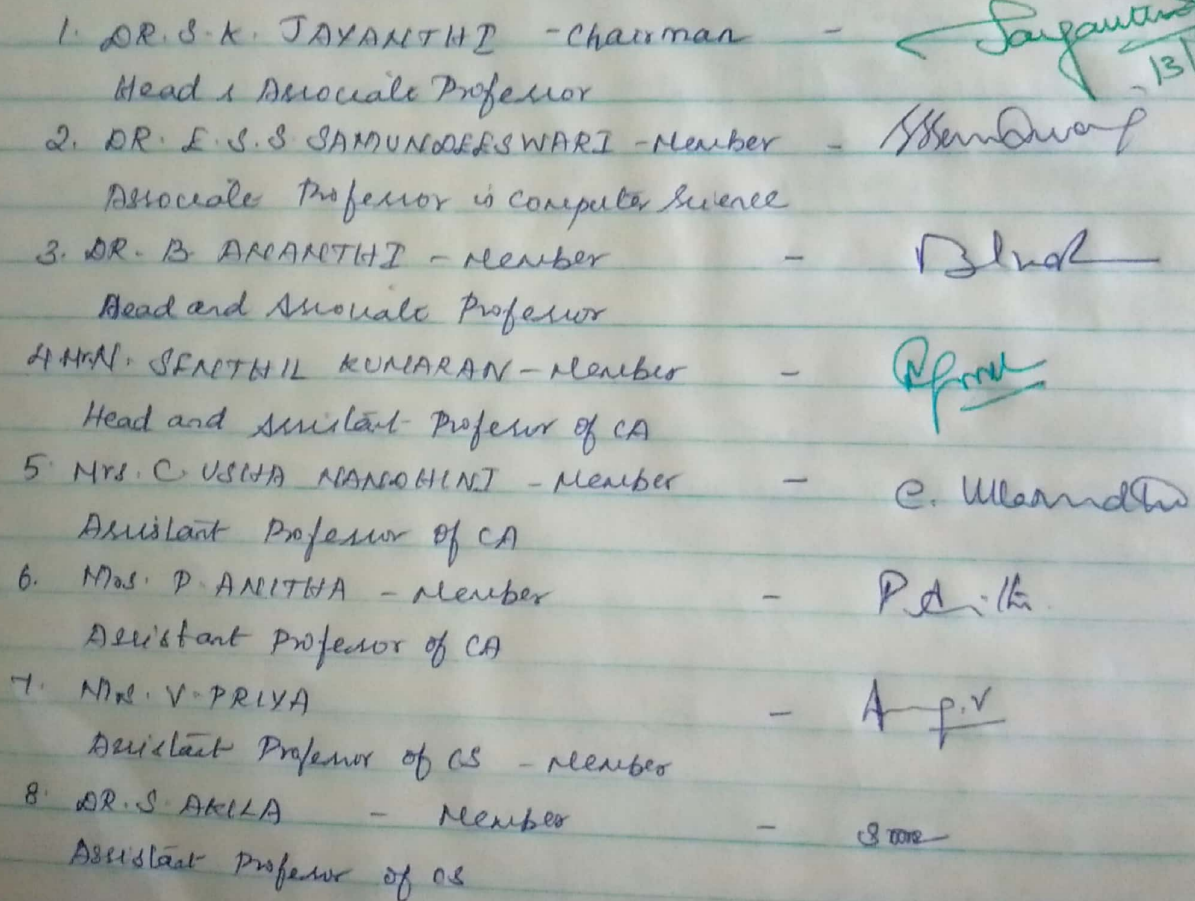 1. DR. S. K. JAYANTHI - Chairman -
Head & Associate Professor
2. DR. E. S. S SAMUNDEESWARI - Member -
Associate Professor in Computer Science
3. DR. B. ANANTHI - Member -
Head and Associate Professor
4 Mr. N. SENTHIL KUMARAN - Member -
Head and Assistant Professor of CA
5 Mrs. C USHA NANDHINI - Member - C.
Assistant Professor of CA
6. Mrs. P. ANITHA - Member -
Assistant Professor of CA
7. Mrs. V. PRIYA - p.v
Assistant Professor of CS - Member
8. DR. S. AKILA - Member -
Assistant Professor of CS